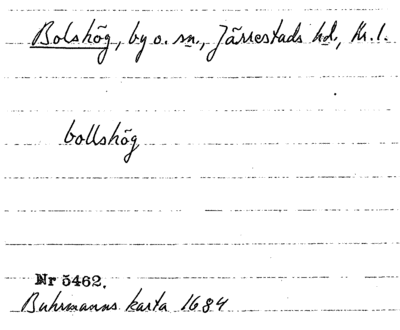 Bolshög, by o. sn., Järrestads hd., Kr. l.
bollshög
Nr 5462.
Buhrmanns karta 1684